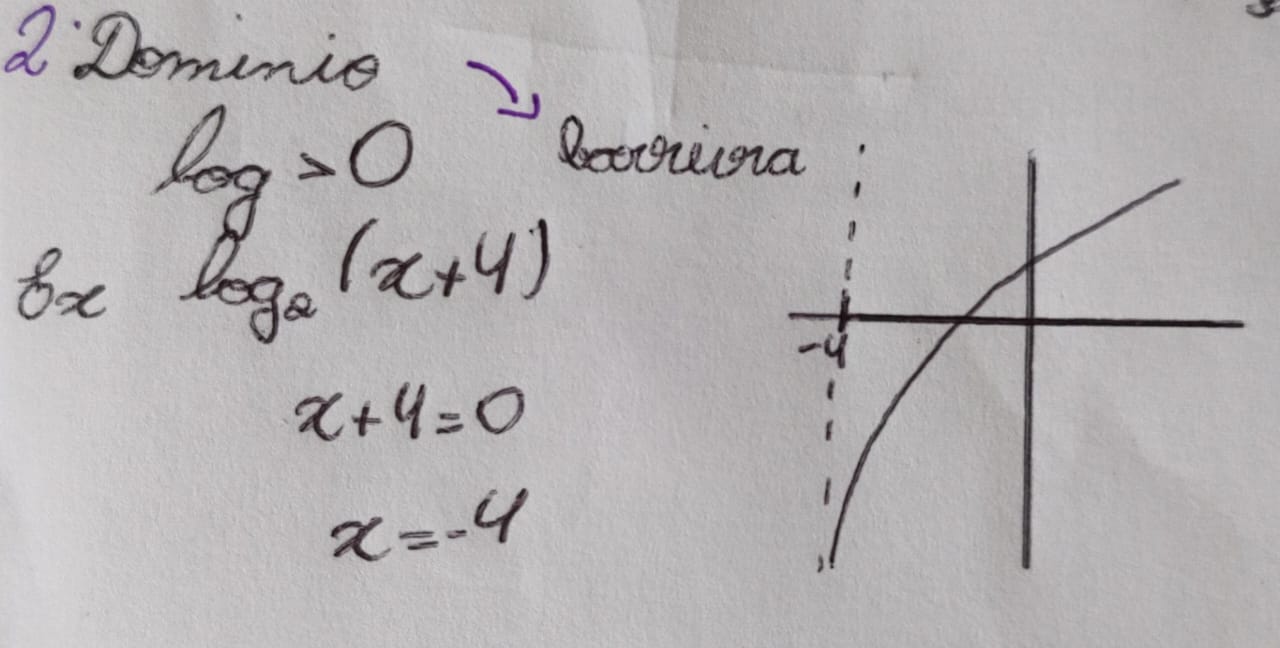 2. Dominio
log > 0
barreira
Ex log₂ (x+4)
x+4=0
x=-4
-4